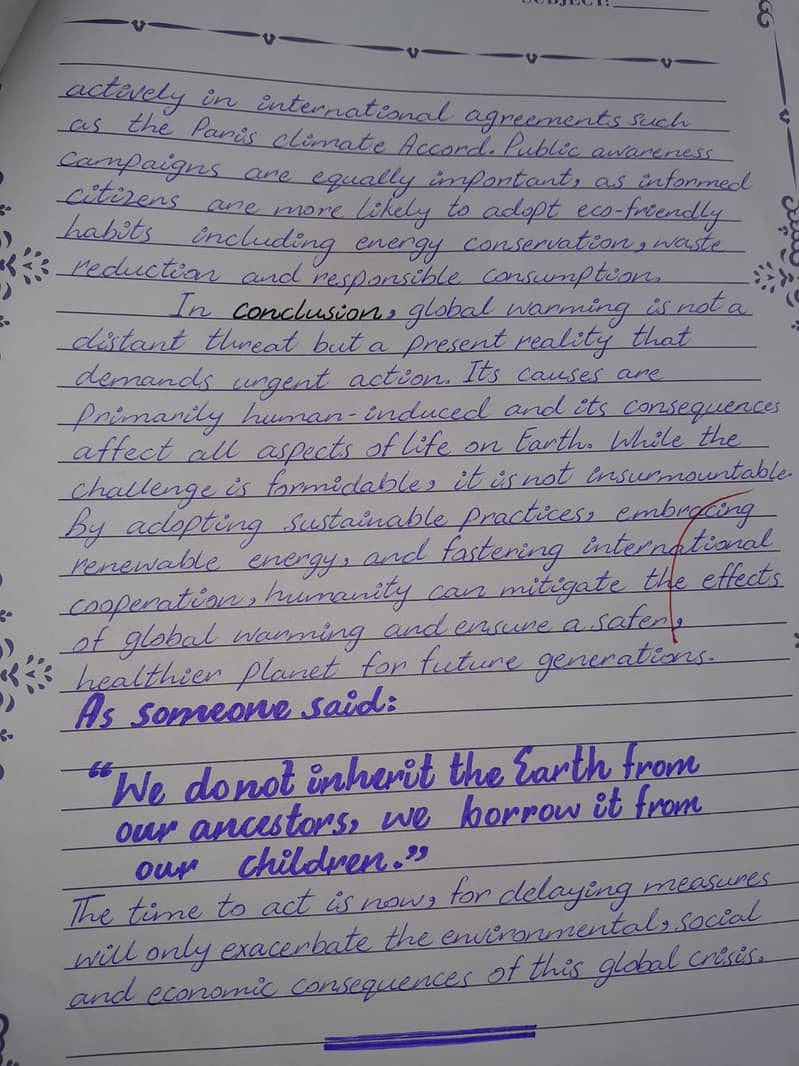 SUBJECT:
actively in international agreements such
as the Paris climate Accord. Public awareness
campaigns are equally important, as informed
citizens are more likely to adopt eco-friendly
habits including energy conservation, waste
reduction and responsible consumption.
In conclusion, global warming is not a
distant threat but a present reality that
demands urgent action. Its causes are
primarily human-induced and its consequences
affect all aspects of life on Earth. While the
challenge is formidable, it is not insurmountable.
By adopting sustainable practices, embracing
renewable energy, and fostering international
cooperation, humanity can mitigate the effects
of global warming and ensure a safer,
healthier planet for future generations.
As someone said:
“We do not inherit the Earth from
our ancestors, we borrow it from
our children.”
The time to act is now, for delaying measures
will only exacerbate the environmental, social
and economic consequences of this global crisis.